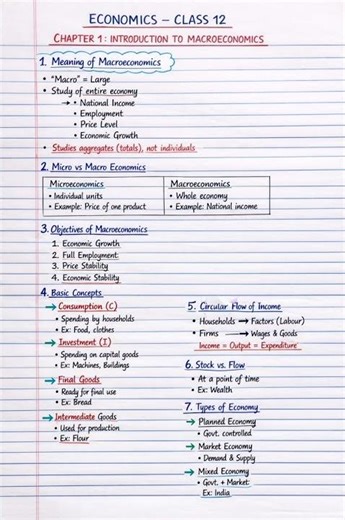 ECONOMICS – CLASS 12
CHAPTER 1: INTRODUCTION TO MACROECONOMICS
1. Meaning of Macroeconomics
• "Macro" = Large
• Study of entire economy
→ • National Income
• Employment
• Price Level
• Economic Growth
• Studies aggregates (totals), not individuals
2. Micro vs Macro Economics
Microeconomics
• Individual units
• Example: Price of one product
Macroeconomics
• Whole economy
• Example: National income
3. Objectives of Macroeconomics
1. Economic Growth
2. Full Employment
3. Price Stability
4. Economic Stability
4. Basic Concepts
→ Consumption (C)
• Spending by households
• Ex: Food, clothes
→ Investment (I)
• Spending on capital goods
• Ex: Machines, Buildings
→ Final Goods
• Ready for final use
• Ex: Bread
→ Intermediate Goods
• Used for production
• Ex: Flour
5. Circular Flow of Income
• Households → Factors (Labour)
• Firms → Wages & Goods
Income = Output = Expenditure
6. Stock vs. Flow
• At a point of time
• Ex: Wealth
7. Types of Economy
→ Planned Economy
• Govt. controlled
→ Market Economy
• Demand & Supply
→ Mixed Economy
• Govt. + Market
Ex: India